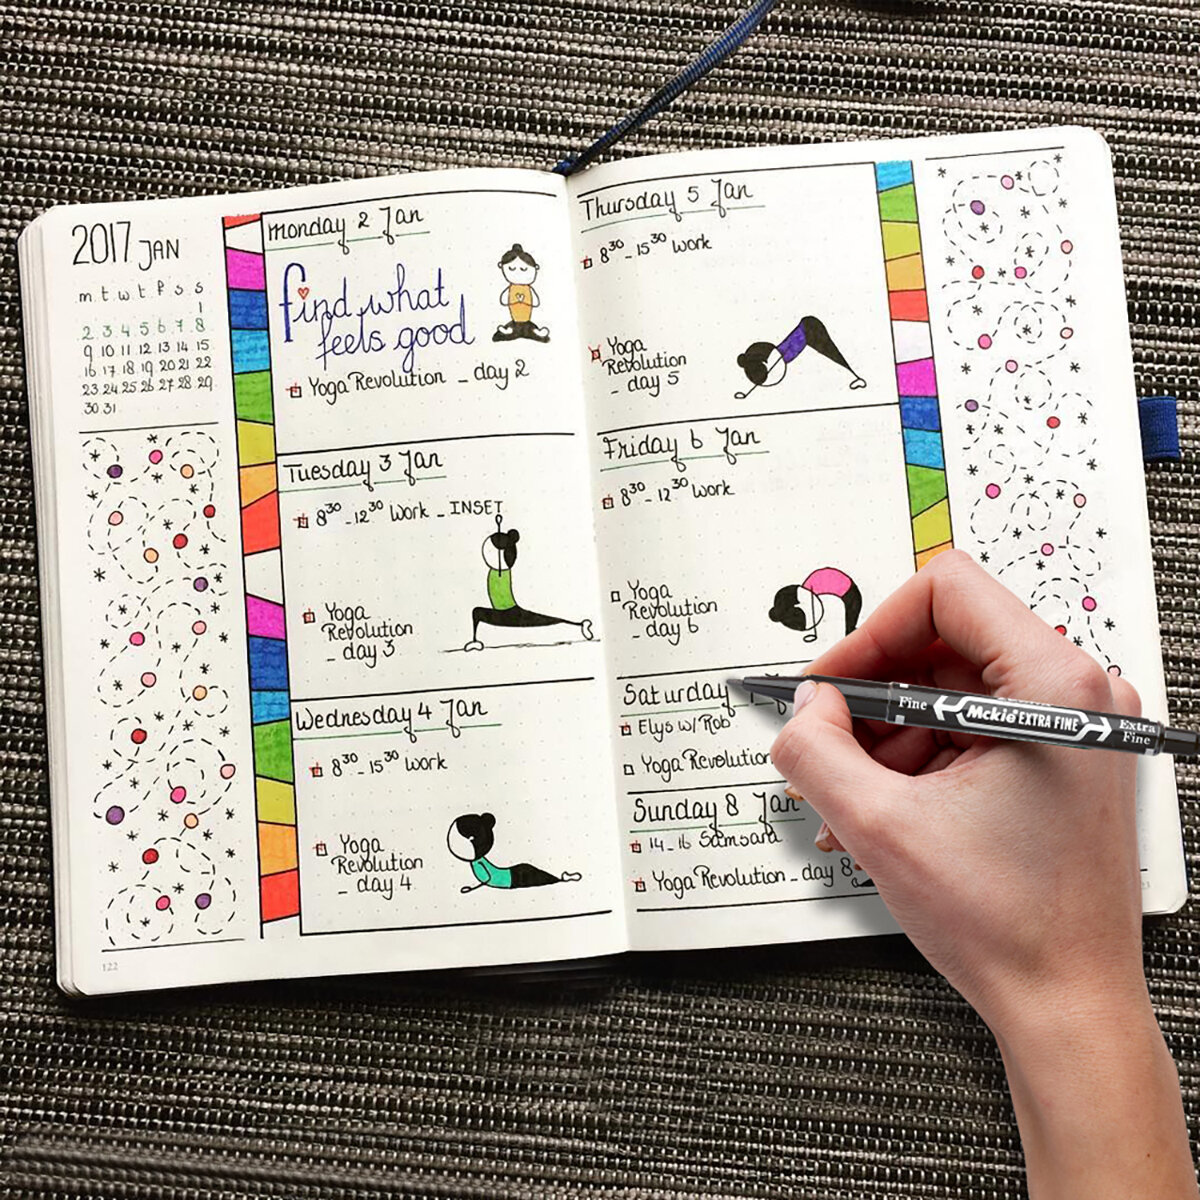 2017 JAN
m t w t f s s
1
2 3 4 5 6 7 8
9 10 11 12 13 14 15
16 17 18 19 20 21 22
23 24 25 26 27 28 29
30 31
122
Monday 2 Jan
find what
feels good
Yoga Revolution _ day 2
Tuesday 3 Jan
8³⁰ - 12³⁰ Work _ INSET
Yoga
Revolution
_ day 3
Wednesday 4 Jan
8³⁰ - 15³⁰ Work
Yoga
Revolution
_ day 4
Thursday 5 Jan
8³⁰ - 15³⁰ Work
Yoga
Revolution
_ day 5
Friday 6 Jan
8³⁰ - 12³⁰ Work
Yoga
Revolution
_ day 6
Saturday
Elys w/ Rob
Yoga Revolution
Sunday 8 Jan
14 - 16 Samsara
Yoga Revolution _ day 8
Fine Mckie EXTRA FINE Extra
Fine